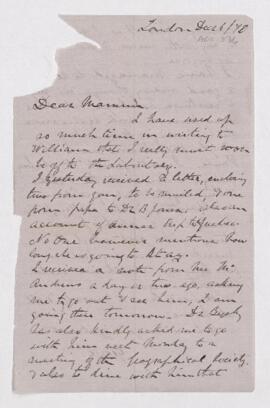 London Dec 6/70
Dear Mamma
I have used up
so much time in writing to
William that I really must soon
be off to the Laboratory.
I yesterday received 2 letters, enclosing
two from you, to be mailed, & one
from papa to Dr B Jones, also an
account of Annas trip to Quebec
No One however mentions how
long she is going to stay.
I received a note from Mr Th.
Andrews a day or two ago, asking
me to go out & see him, I am
going there tomorrow. Dr
has also kindly asked me to go
with him next Monday to a
meeting of the Geographical Society,
& also to dine with him that